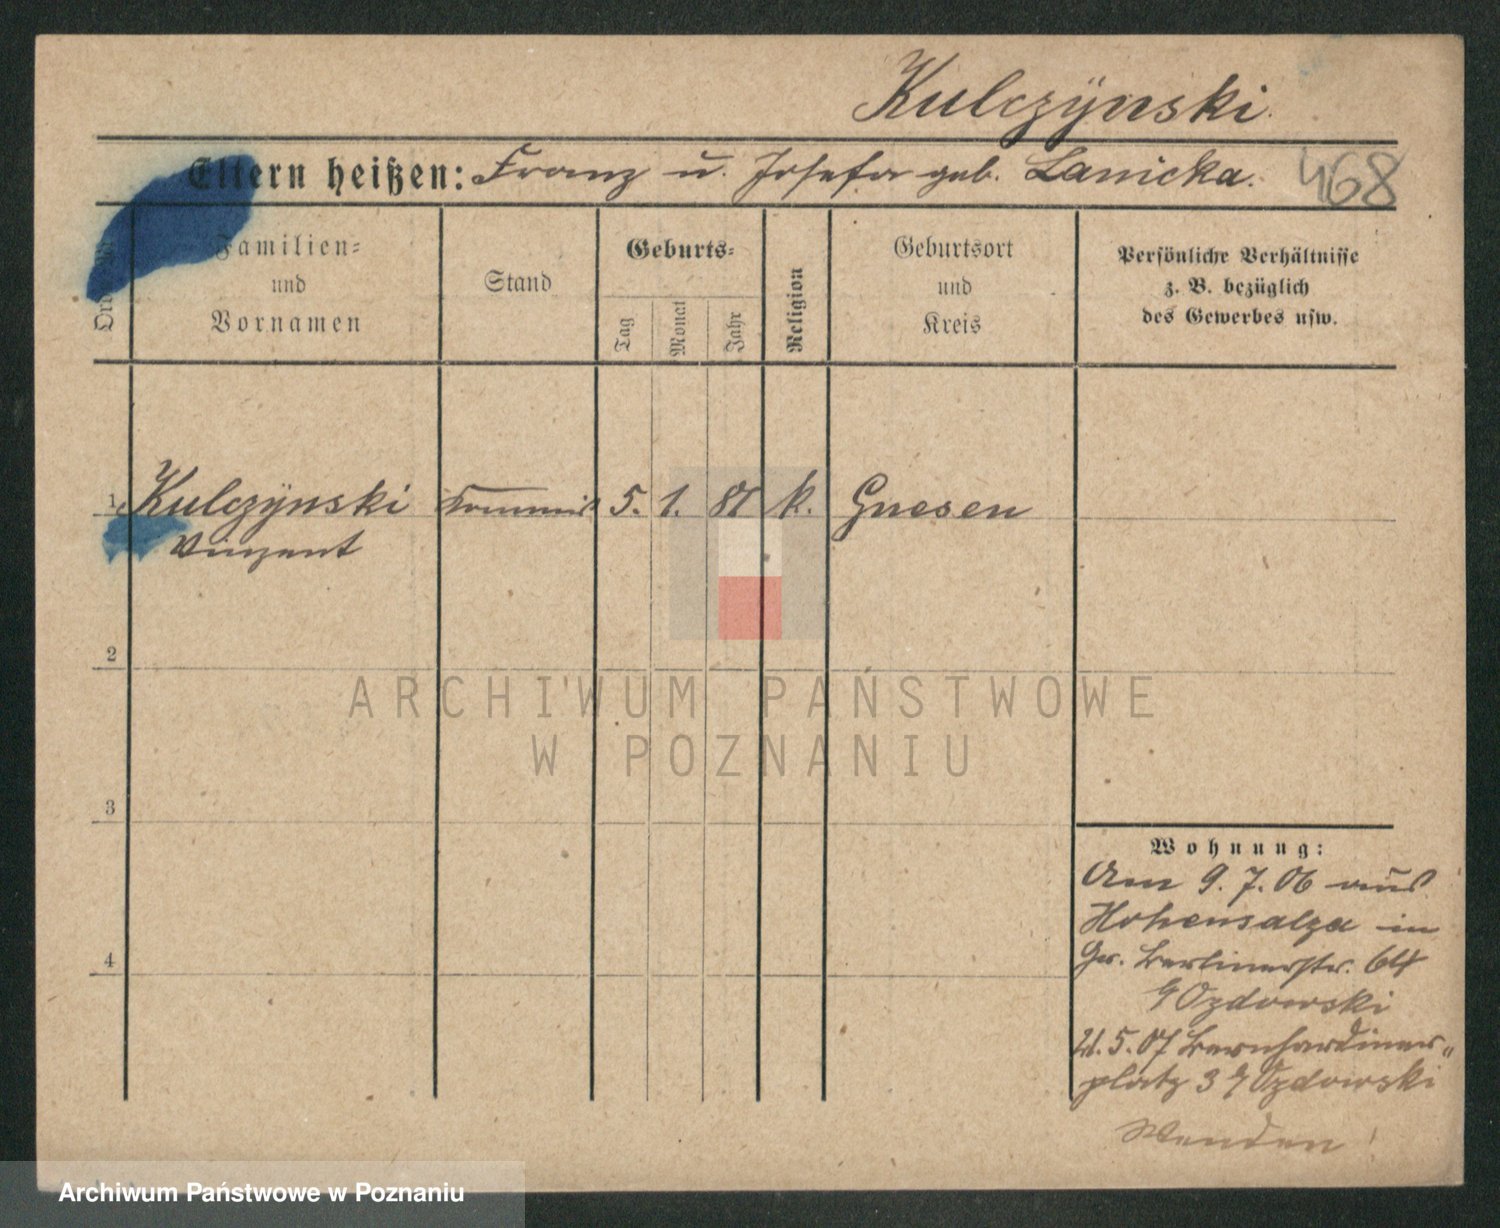 Kulczÿnski.
Eltern heißen: Franz u. Josefa geb. Lanicka.
468
Familien-
und
Vornamen
Stand
Geburts-
Tag
Monat
Jahr
Religion
Geburtsort
und
Kreis
Persönliche Verhältnisse
z. B. bezüglich
des Gewerbes usw.
1 Kulczÿnski Kommis 5. 1. 81 k. Gnesen
Vinzent
2
3
4
ARCHIWUM PAŃSTWOWE
W POZNANIU
Wohnung:
Am 9. 7. 06 aus
Hohensalza in
Gr. Berlinerstr. 64
Ozdowski
21. 5. 07 Bernhardiner-
platz 3 Ozdowski
Wenden!
Archiwum Państwowe w Poznaniu